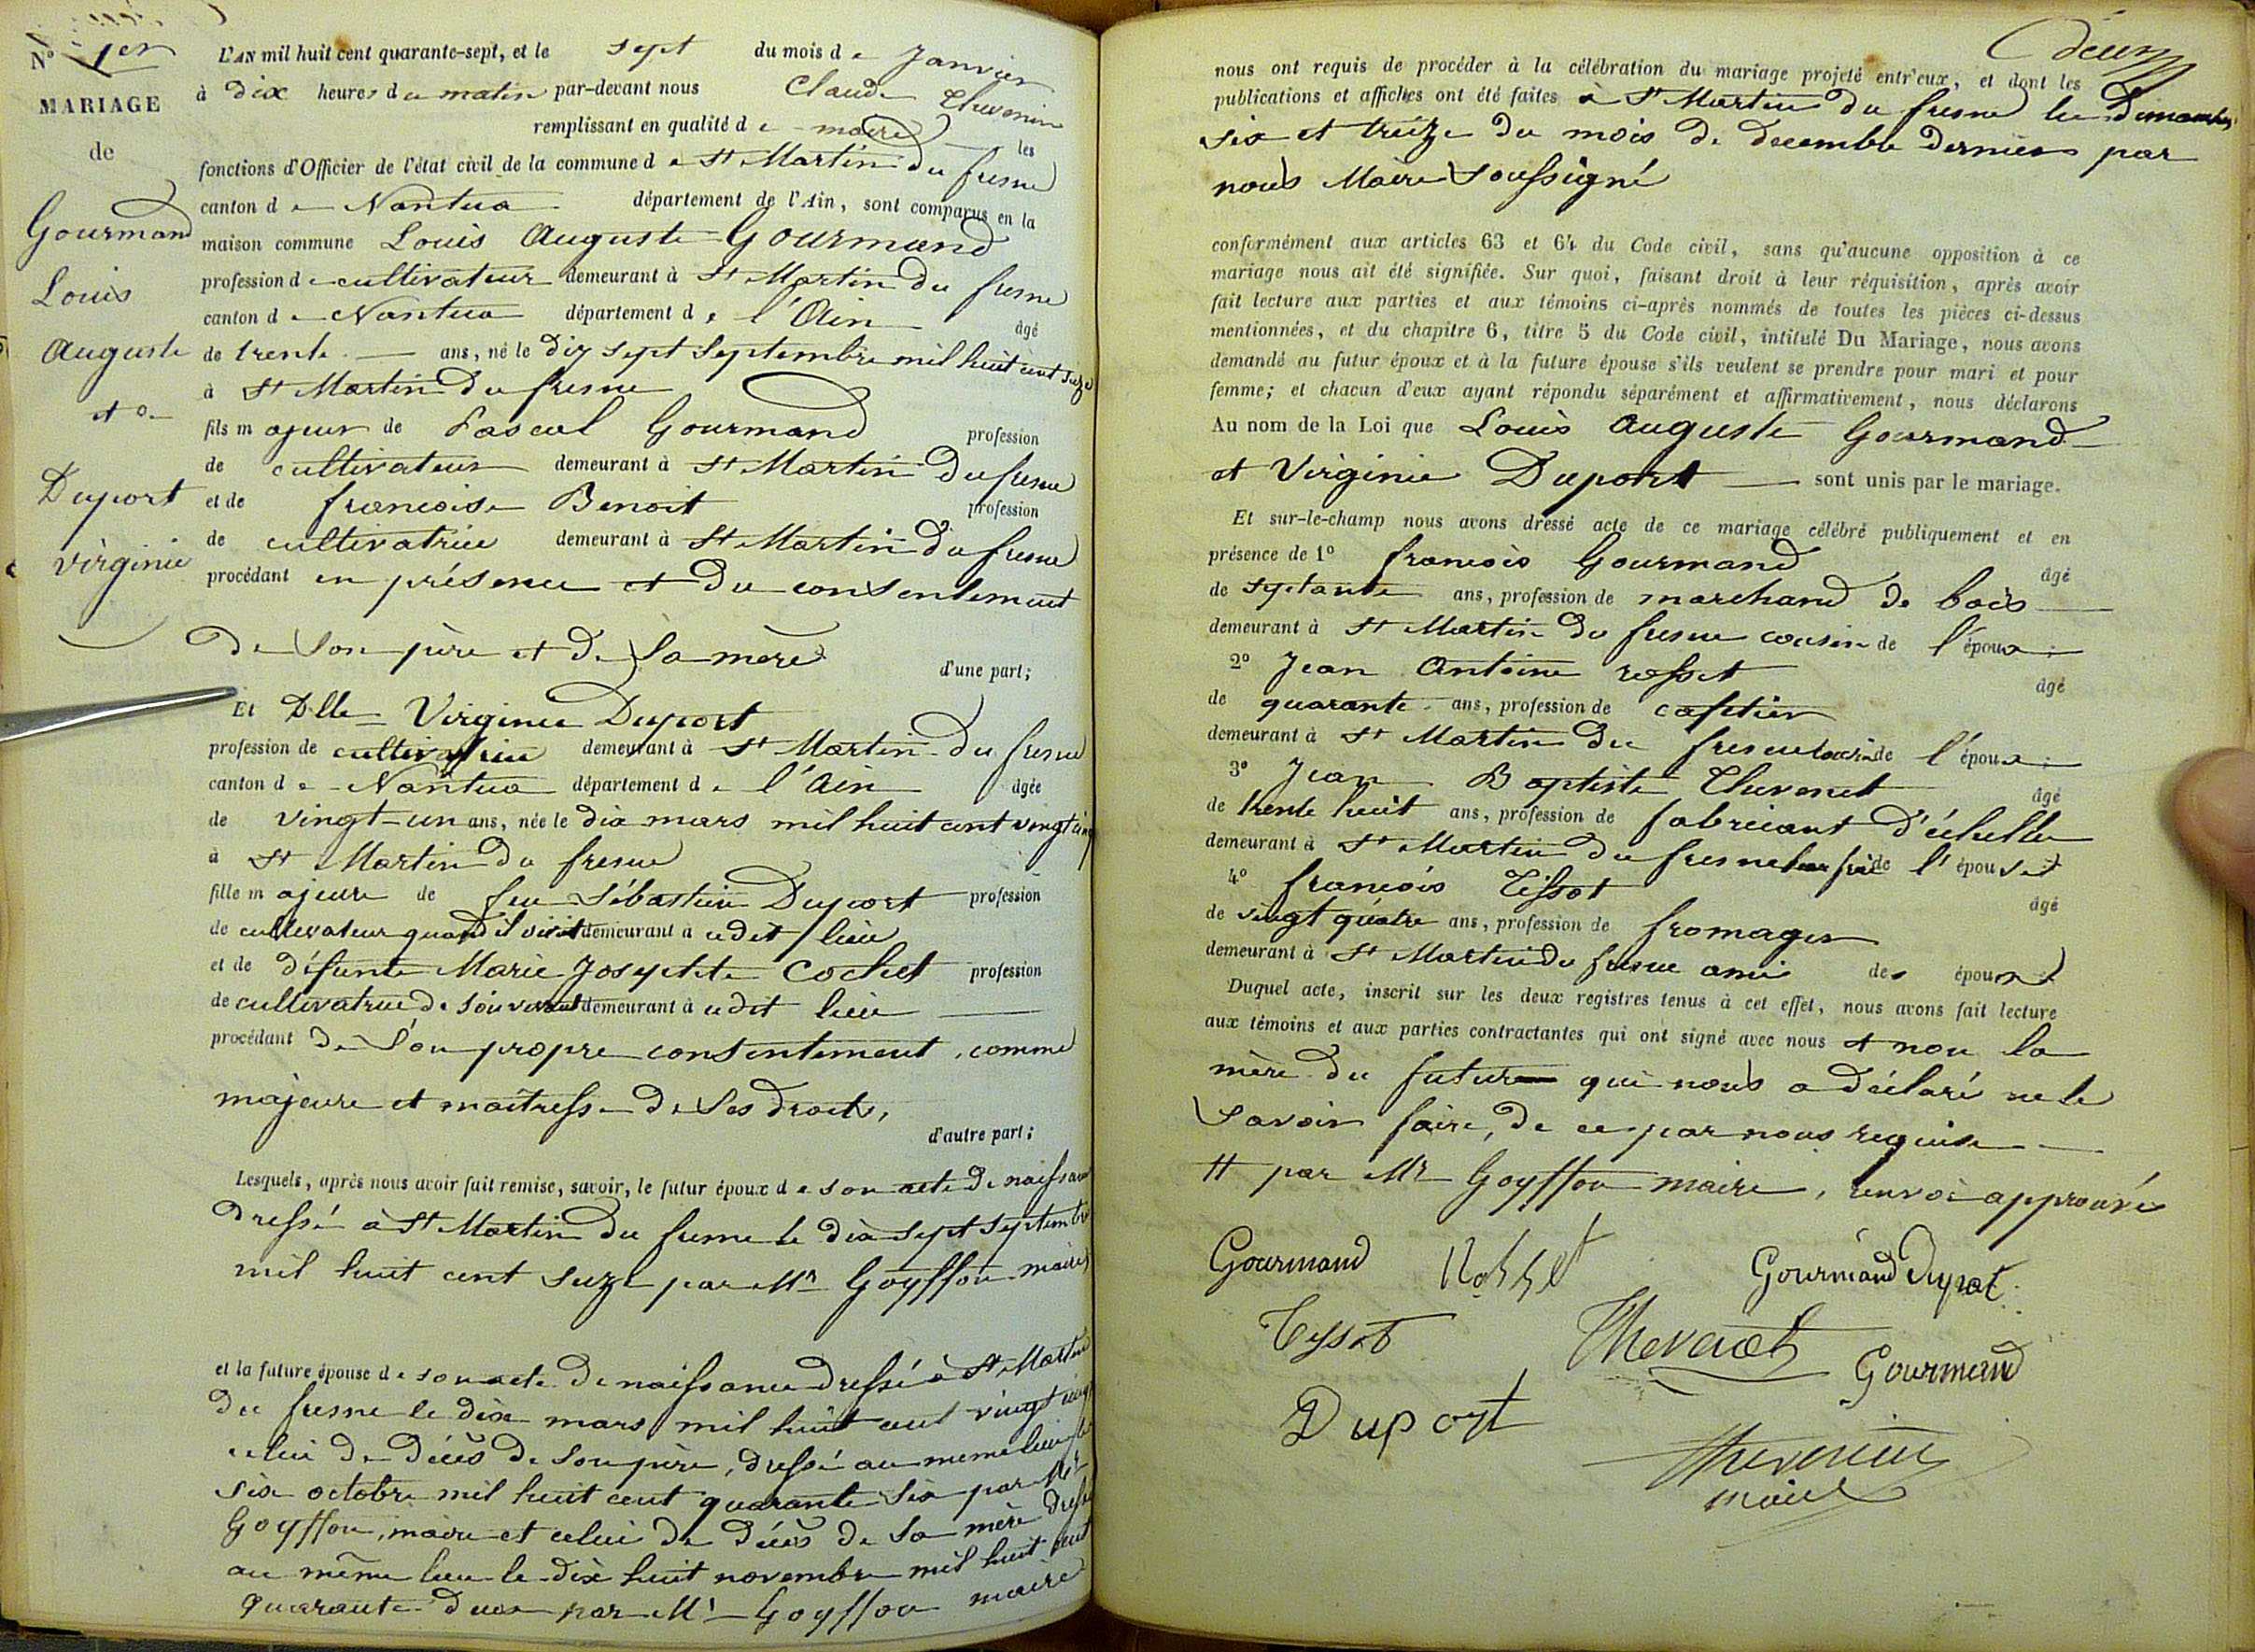 N° 1er
MARIAGE
de
Gourmand
Louis
Auguste
et
Duport
virginie
L'AN mil huit cent quarante-sept, et le sept du mois de Janvier
à dix heures du matin par-devant nous Claude Thevenin
remplissant en qualité de maire les
fonctions d'Officier de l'état civil de la commune de St Martin du fresne
canton de Nantua département de l'Ain, sont comparus en la
maison commune Louis Auguste Gourmand
profession de cultivateur demeurant à St Martin du fresne
canton de Nantua département de l'Ain âgé
de trente ans, né le dix sept Septembre mil huit cent seize
à St Martin du fresne
fils majeur de Pascal Gourmand profession
de cultivateur demeurant à St Martin du fresne
et de francoise Benoit profession
de cultivatrice demeurant à St Martin du fresne
procédant en présence et du consentement
de Son père et de Sa mère
d'une part;
Et Dlle Virginie Duport
profession de cultivatrice demeurant à St Martin du fresne
canton de Nantua département de l'Ain âgée
de vingt-un ans, née le dix mars mil huit cent vingt cinq
à St Martin du fresne
fille majeure de feu Sébastien Duport profession
de cultivateur quand il vivait demeurant à udit lieu
et de défunte Marie Josephte Cochet profession
de cultivatrice de Son vivant demeurant à udit lieu
procédant de Son propre consentement, comme
majeure et maîtresse de Ses droits,
d'autre part;
Lesquels, après nous avoir fait remise, savoir, le futur époux de son acte de naissance
dressé à St Martin du fresne le dix sept septembre
mil huit cent seize par Mr Goyffon maire
et la future épouse de son acte de naissance dressé à St Martin
du fresne le dix mars mil huit cent vingt cinq
celui de décès de Son père, dressé au meme lieu le
six octobre mil huit cent quarante six par Mr
Goyffon, maire et celui de décès de Sa mère dressé
au même lieu le dix huit novembre mil huit cent
quarante deux par Mr Goyffon maire
deux
nous ont requis de procéder à la célébration du mariage projeté entr'eux, et dont les
publications et affiches ont été faites à St Martin du fresne les Dimanches
six et treize du mois de decembre dernier par
nous Maire Soussigné
conformément aux articles 63 et 64 du Code civil, sans qu'aucune opposition à ce
mariage nous ait été signifiée. Sur quoi, faisant droit à leur réquisition, après avoir
fait lecture aux parties et aux témoins ci-après nommés de toutes les pièces ci-dessus
mentionnées, et du chapitre 6, titre 5 du Code civil, intitulé Du Mariage, nous avons
demandé au futur époux et à la future épouse s'ils veulent se prendre pour mari et pour
femme; et chacun d'eux ayant répondu séparément et affirmativement, nous déclarons
Au nom de la Loi que Louis Auguste Gourmand
et Virginie Duport sont unis par le mariage.
Et sur-le-champ nous avons dressé acte de ce mariage célébré publiquement et en
présence de 1° francois Gourmand âgé
de septante ans, profession de marchand de bois
demeurant à St Martin du fresne cousin de l'époux;
2° Jean Antoine rosset âgé
de quarante ans, profession de caffetier
demeurant à St Martin du fresne cousin de l'époux;
3° Jean Baptiste Thevenet âgé
de trente huit ans, profession de fabricant d'échelles
demeurant à St Martin du fresne beau frère de l'épouse
4° francois Tissot âgé
de vingt quatre ans, profession de fromager
demeurant à St Martin du fresne ami des époux
Duquel acte, inscrit sur les deux registres tenus à cet effet, nous avons fait lecture
aux témoins et aux parties contractantes qui ont signé avec nous et non la
mère du futur qui nous a déclaré ne le
Savoir faire, de ce par nous requise
# par Mr Goyffon maire, renvoi approuvé
Gourmand Rosset Gourmand Duport
Tissot Thevenet Gourmand
Duport
Thevenin
maire